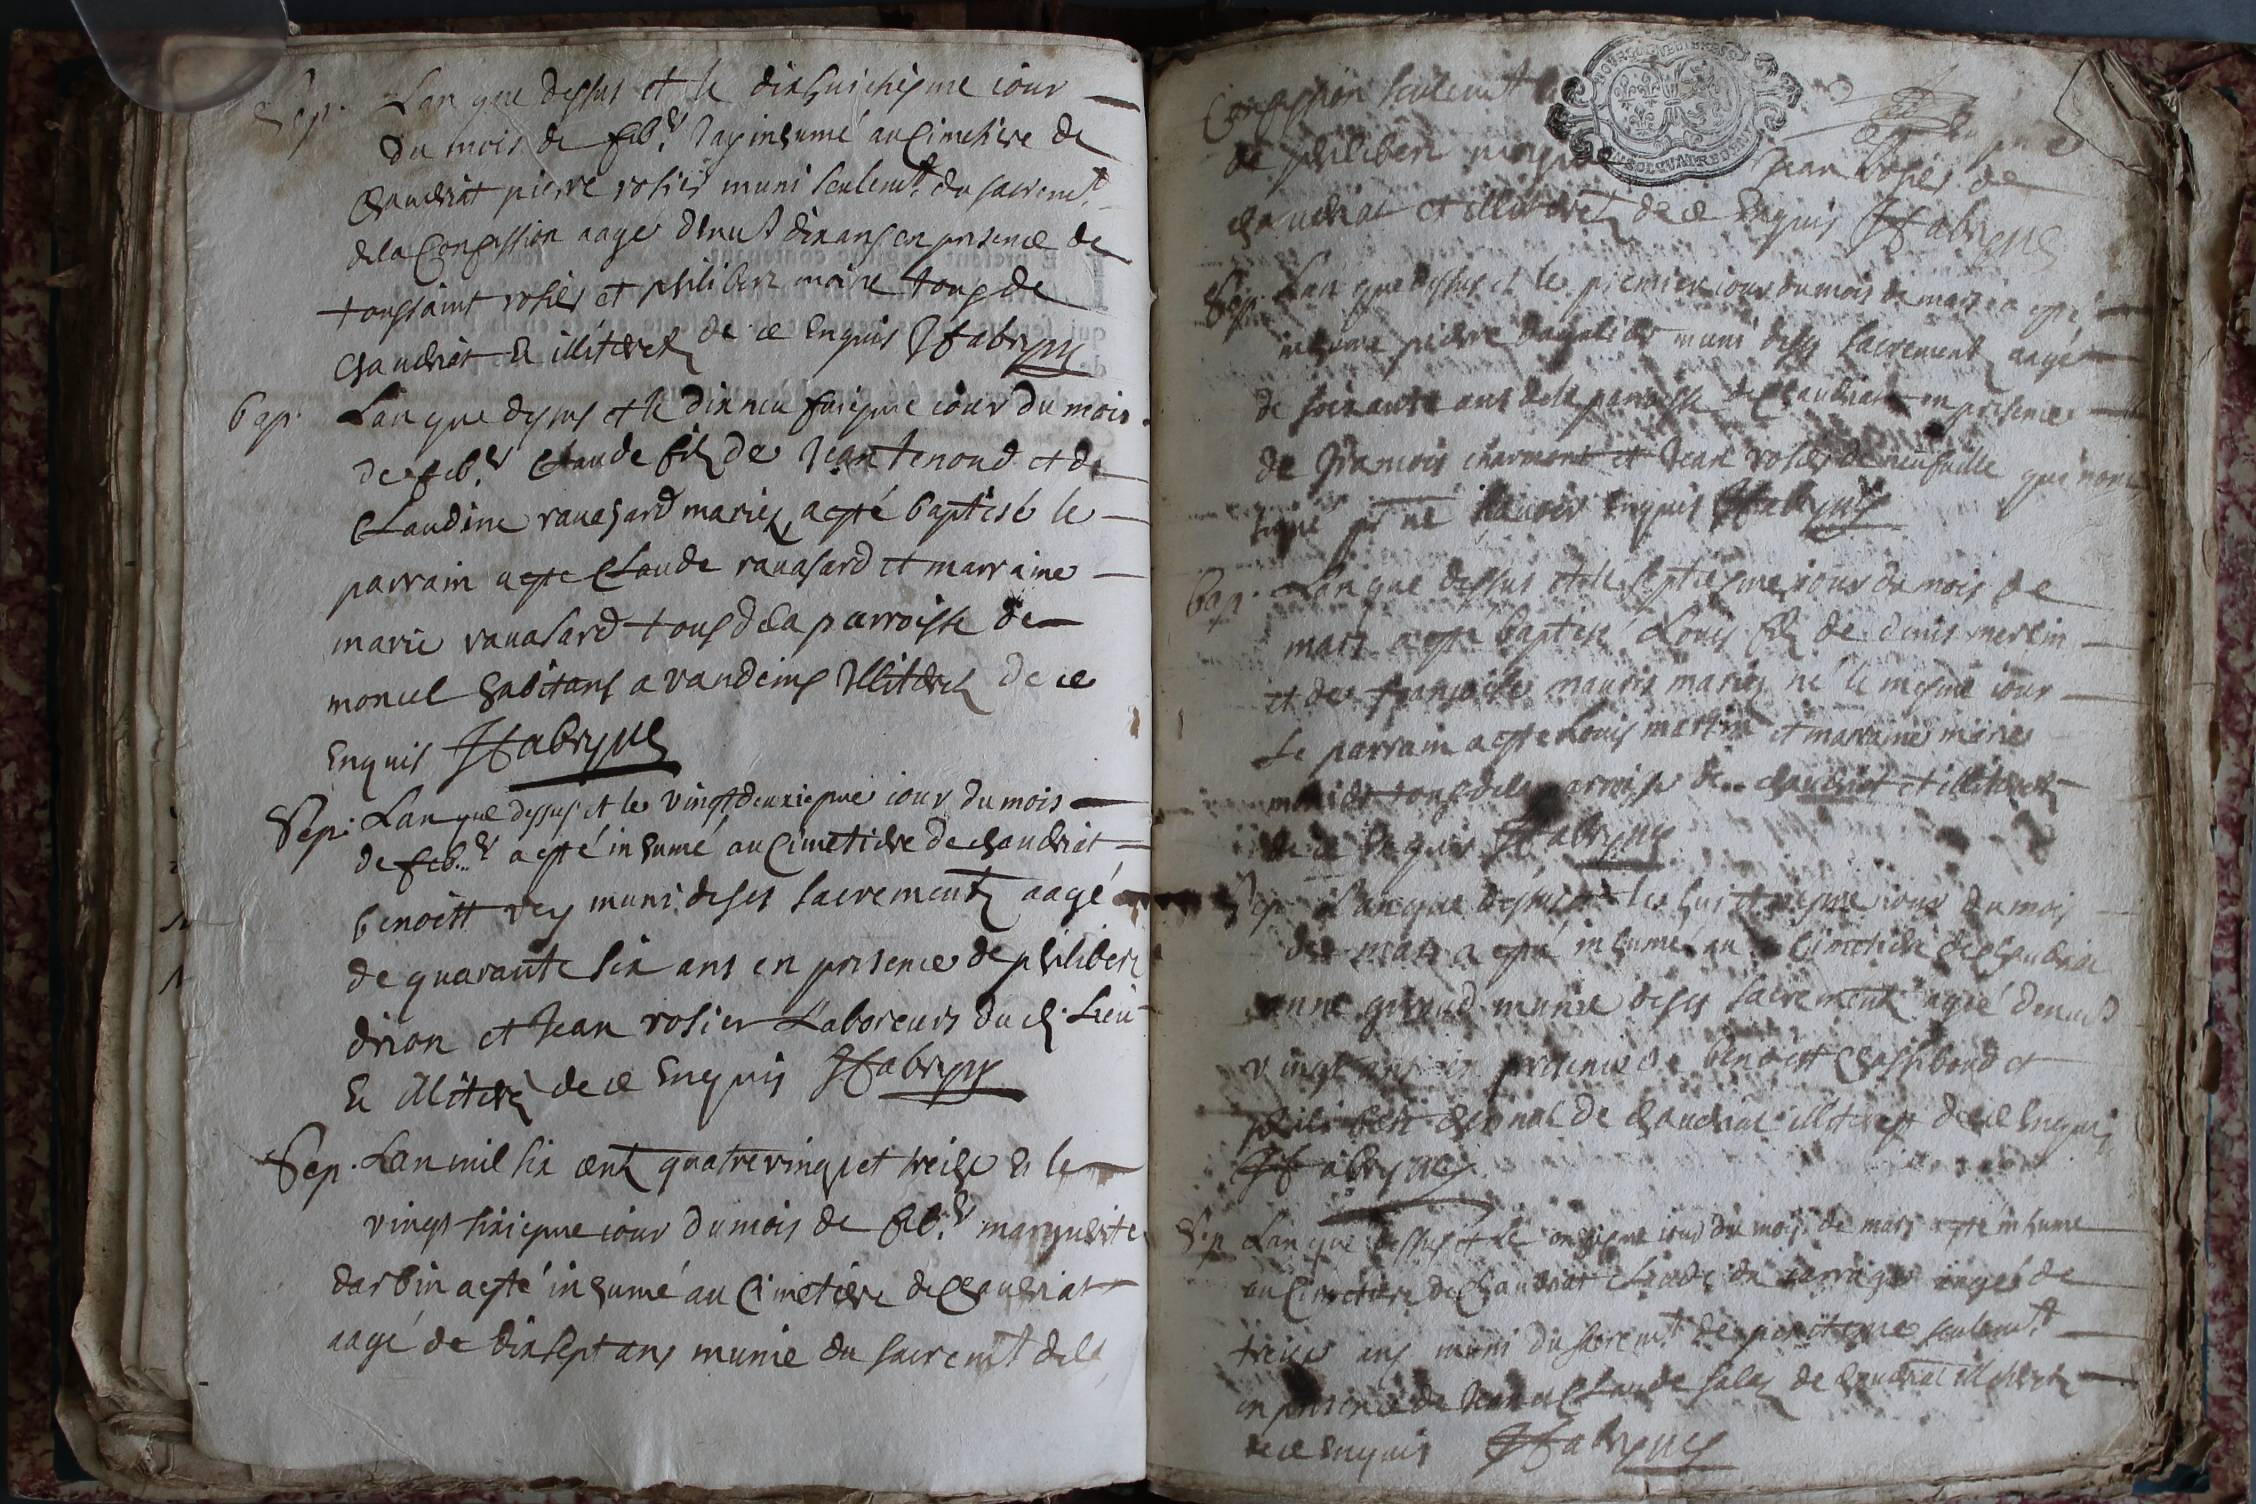 Sep. Lan que dessus et le dixhuictiesme iour
du mois de feb.r Jay inhumé au Cimetiere de
chaudriat pierre rosier muni seulemt. du sacremt.
dela Confession aagé denut dix ans en presence de
toussaint rosier et philibert moine tous de
chaudriat & illiterez de ce Enquis JFabry
bap. Lan que dessus et le dixneufuiesme iour du mois
de feb.r Claude filz de Jean tenoud et de
Claudine rauasard mariez a esté baptisé le
parrain a este Claude rauasard et marraine
marie rauasard tous dela parroisse de
moncel habitans a vandeins Illiterez de ce
Enquis JFabry
Sep. Lan que dessus et le vingtdeuxiesme iour du mois
de feb.r a esté inhumé au Cimetiere de chaudriat
benoistt rey muni de ses sacrementz aagé
de quarante six ans en presence de philibert
drion et Jean rosier Laboreurs dud. Lieu
& illiterez de ce Enquis JFabry
Sep. Lan mil six centz quatrevingt et treize & le
vingt sixiesme iour du mois de feb.r marguerite
darbin a esté inhumé au Cimetiere de Chaudriat
aagé de dix sept ans munie du sacremt dela
Confession seulemt
de philibert Jean rosier de
chaudriat et illiterez de ce Enquis JFabry
Sep. Lan que dessus et le premier iour du mois de mars a esté
inhumé pierre muni de ses sacrementz aagé
de soixante ans dela parroisse de Chaudriat en presence
de francois charmont et Jean rosier de neufuille qui nont
signé pr ne scauoir Enquis JFabry
bap. Lan que dessus et le septiesme iour du mois de
mars a esté baptisé Louis filz de denis merlin
et de francoise mariez né le mesme iour
Le parrain a este Louis martin et marraine marie
tous dela parroisse de chaudriat et illiterez
de ce Enquis JFabry
Sep. Lan que dessus et le huictiesme iour du mois
de mars a esté inhumé au Cimetiere de Chaudriat
anne munie de ses sacrementz agée denud
vingt ans en presence de benoistt et
philibert de chaudriat illiterez de ce Enquis
JFabry
Sep. Lan que dessus et Le onziesme iour du mois de mars a esté inhumé
au Cimetiere de Chaudriat Claude aagé de
treize ans muni du sacremt de penitence seulemt
en presence de Jean et Claude de chaudriat illiterez
de ce Enquis JFabry